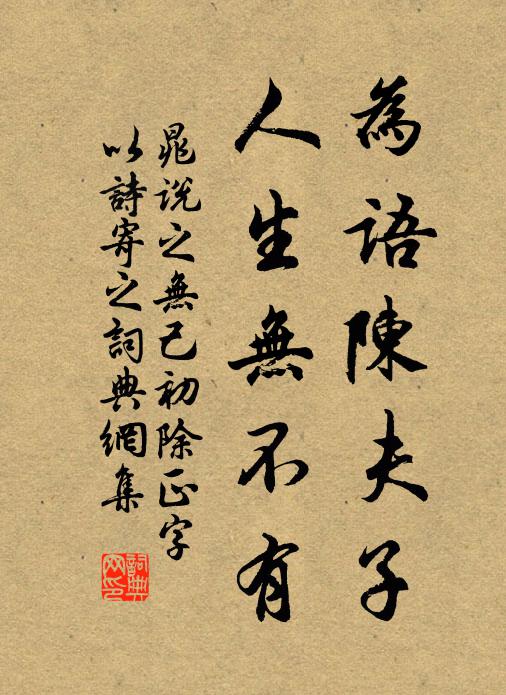 為語陳夫子
人生無不有
晁說之無己初除正字
以詩寄之詞典網集
詞典
网印